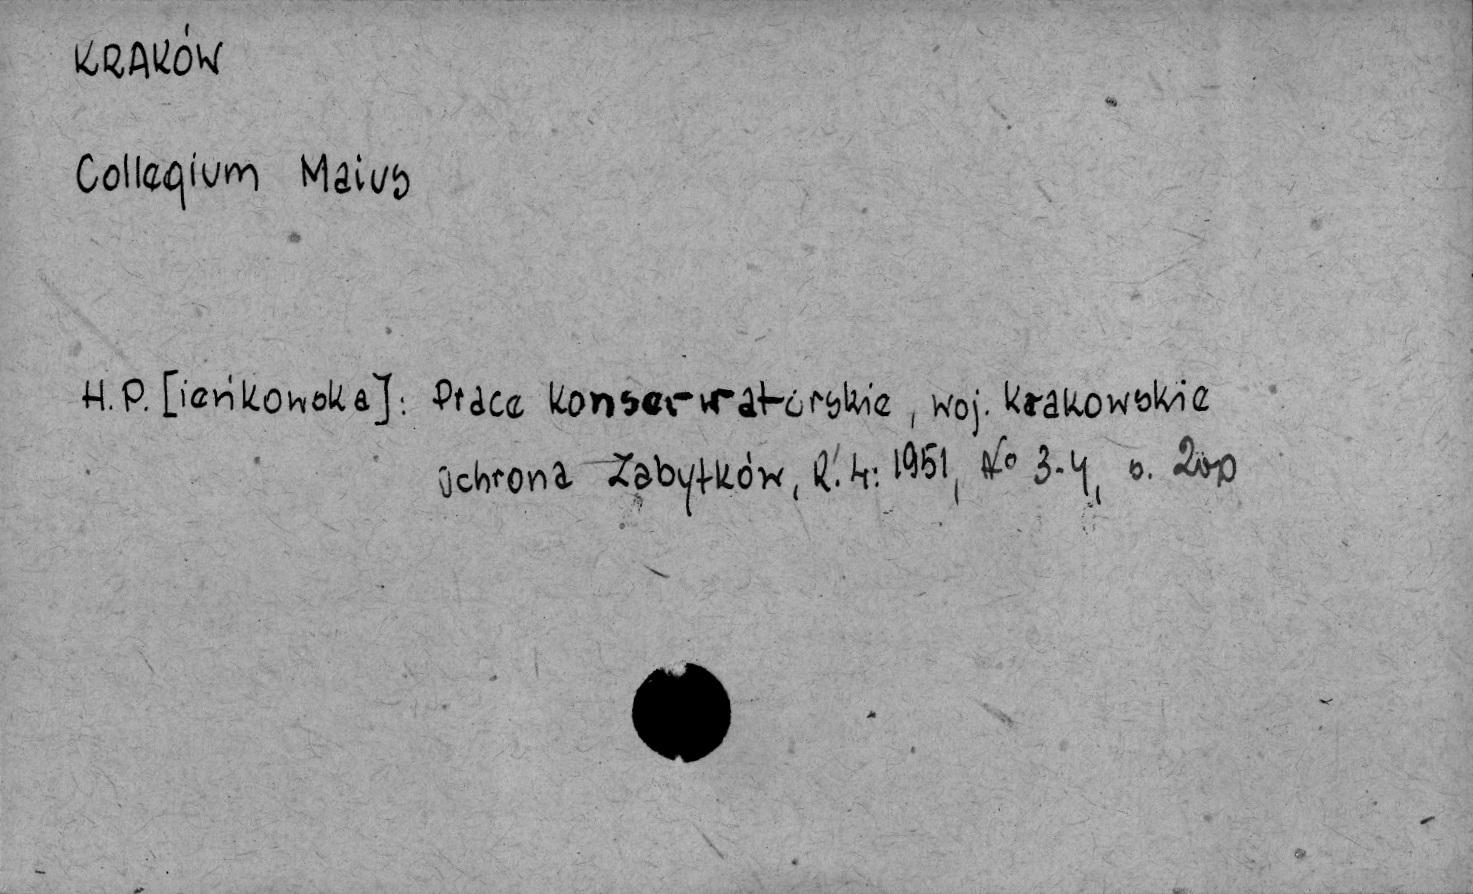 KRAKÓW
Collegium Maius
H. P. [ieńkowska]: Prace konserwatorskie, woj. krakowskie
Ochrona Zabytków, R. 4: 1951, No 3-4, s. 200